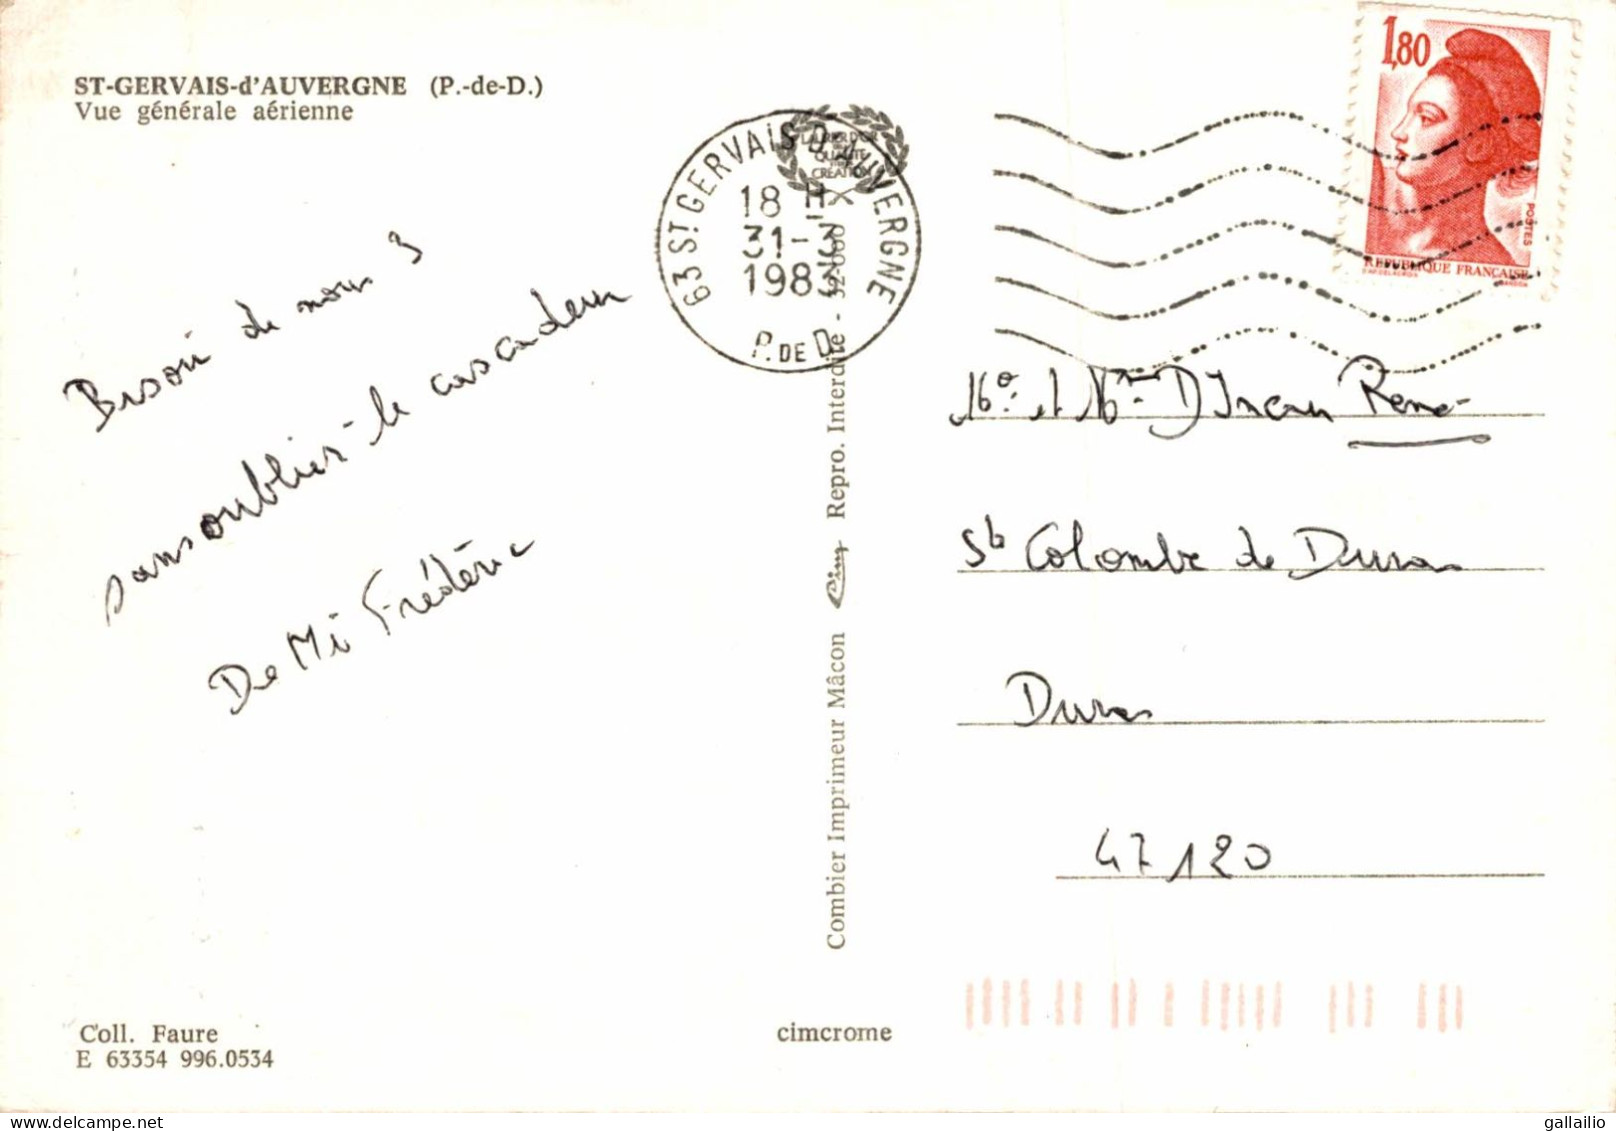 ST-GERVAIS-d'AUVERGNE (P.-de-D.)
Vue générale aérienne
Bisou de nous 3
sans oublier le cascadeur
De Mi Frédéric
63 ST GERVAIS D'AUVERGNE
18 H
31-3
1983
P. DE D.
LAURIER D'OR
QUALITÉ
CRÉATION
1,80
POSTES
REPUBLIQUE FRANÇAISE
Mr et Mme René
Ste Colombe de Duras
Duras
47120
Combier Imprimeur Mâcon Cim Repro. Interdite -
Coll. Faure
E 63354 996.0534
cimcrome
gallailio